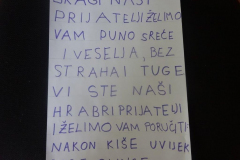 DRAGI NAŠI
PRIJATELJI ŽELIMO
VAM PUNO SREĆE
I VESELJA, BEZ
STRAHA I TUGE
VI STE NAŠI
HRABRI PRIJATELJI
I ŽELIMO VAM PORUČITI
NAKON KIŠE UVIJEK